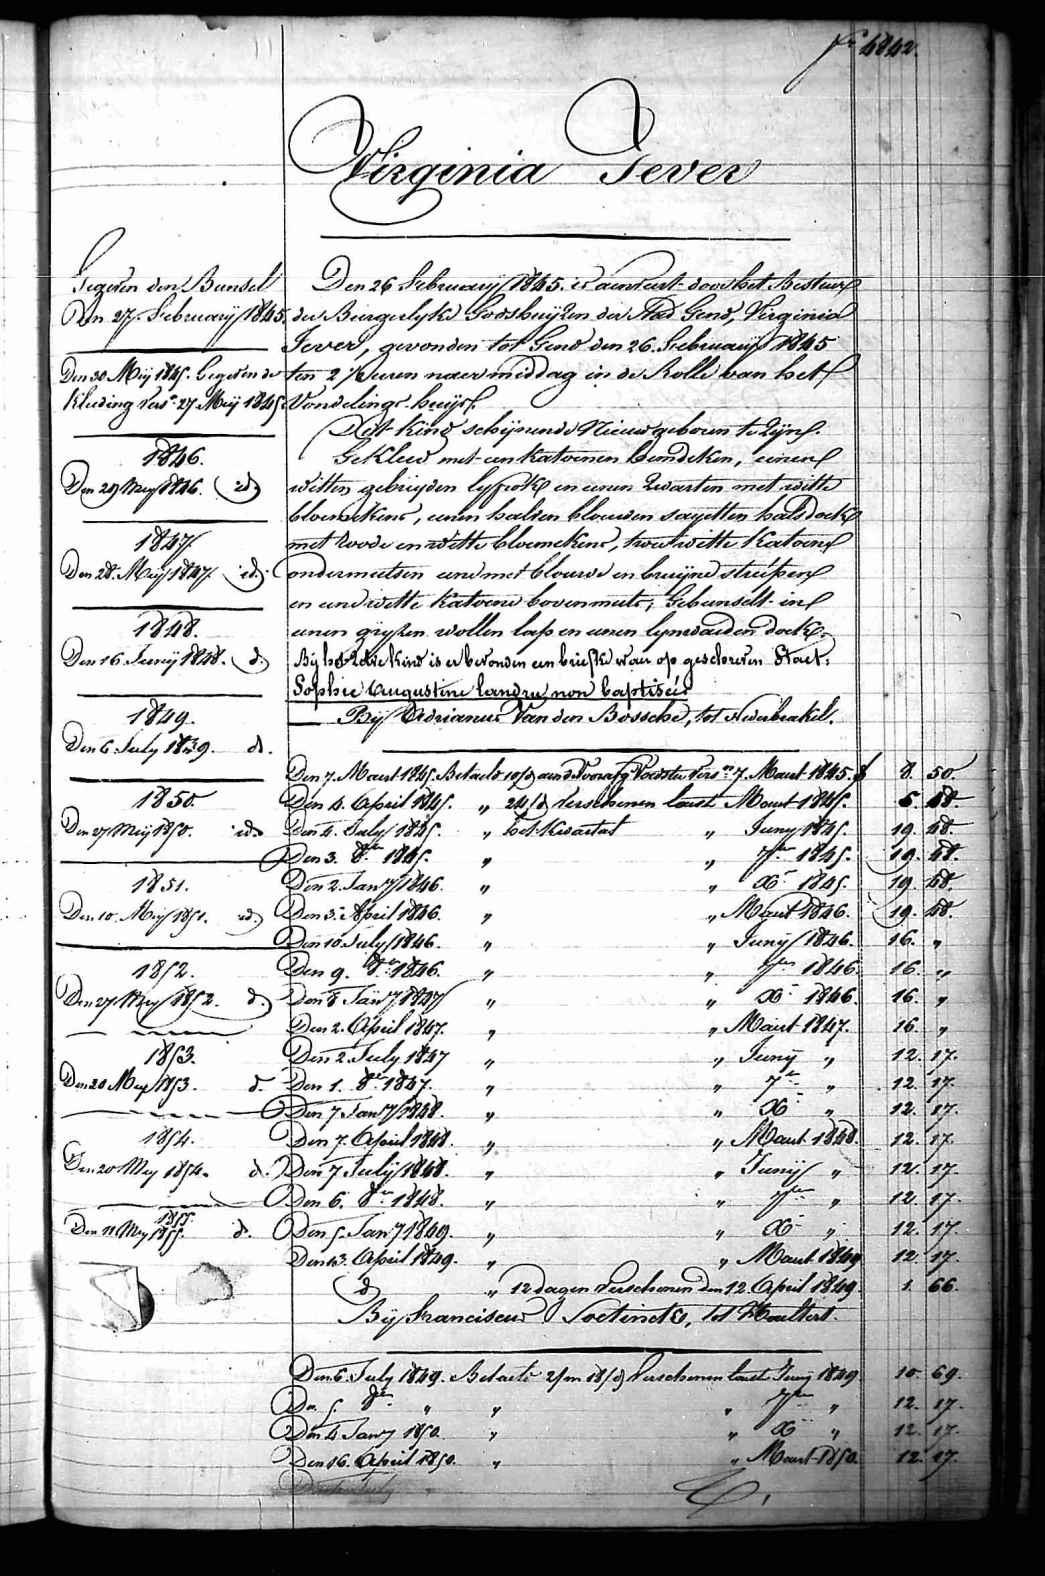 4842.
Virginia Jever
Gegeven den Bunsel
Den 27. February 1845.
Den 30 Meij 1845. Gegeven de
Kleeding vers.n 27 Meij 1845.
1846.
Den 29 Meij 1846. id
1847.
Den 28. Meij 1847. id.
1848.
Den 16 Junij 1848. d.
1849.
Den 6. July 1839. d.
1850.
Den 27 Meij 1850. id.
1851.
Den 10. Meij 1851. id.
1852.
Den 27. Mey 1852. d.
1853.
Den 20 Mey 1853. d.
1854.
Den 20 Mey 1854. d.
1855.
Den 11 Mey 1855. d.
Den 26 February 1845. is aenveert door het Bestuer
der Burgerlyke Godshuijzen der Stad Gend, Virginia
Jever, gevonden tot Gend den 26. February 1845
ten 2 Uuren naermiddag in de Rolle van het
Vondelings-huijs.
Dit kind schijnende Nieuwgeboren te zijn.
Gekleed met een katoenen hemdeken, eenen
witten gebreyden lyfrok en eenen zwarten met witte
bloemekens, eenen halven blauwen sayetten halsdoek
met roode en witte bloemekens, twee witte katoene
ondermutsen eene met blauwe en bruijne streepen
en eene witte katoene bovenmuts; Gebunselt in
eenen gryzen wollen lap en eenen lynwaeden doek.
Bij het zelve kind is er bevonden een briefke waer op geschreven Staet:
Sophie Augustine Landru non baptisée
Bij Adrianus Van den Bossche, tot Nederbrakel.
Den 7. Maert 1845. Betaeld 10/d aen de Voorafg. Voedster Vers.n 7. Maert 1845. f 8. 50.
Den 4. April 1845. „ 24/d Verschenen laest Maert 1845. 5. 48.
Den 4. July 1845. „ het Kwartael „ Juny 1845. 19. 48.
Den 3. 8.er 1845. „ „ 7.er 1845. 19. 48.
Den 2. Jan.y 1846. „ „ X.r 1845. 19. 48.
Den 3. April 1846. „ „ Maert 1846. 19. 48.
Den 10 July 1846. „ „ Junij 1846. 16. „
Den 9. 8.er 1846. „ „ 7.er 1846. 16. „
Den 8 Jan.y 1847 „ „ X.r 1846. 16. „
Den 2. April 1847. „ „ Maert 1847. 16. „
Den 2. July 1847 „ „ Juny „ 12. 17.
Den 1. 8.er 1847. „ „ 7.er „ 12. 17.
Den 7 Jan.y 1848. „ „ X.r „ 12. 17.
Den 7. April 1848. „ „ Maert 1848. 12. 17.
Den 7 July 1848. „ „ Junij „ 12. 17.
Den 6. 8.er 1848. „ „ 7.er „ 12. 17.
Den 5. Jan.y 1849. „ „ X.r „ 12. 17.
Den 13. April 1849. „ „ Maert 1849 12. 17.
d „ 12 dagen Verschenen den 12. April 1849. 1. 66.
Bij Franciscus Soetinckx, tot Haeltert.
Den 6. July 1849. Betaelt 2/m 18/d Verschenen laest Junij 1849 10. 69.
Den 5. 8.er „ „ „ 7.er „ 12. 17.
Den 4 Jan.y 1850. „ „ X.r „ 12. 17.
Den 16. April 1850. „ „ Maert 1850. 12. 17.